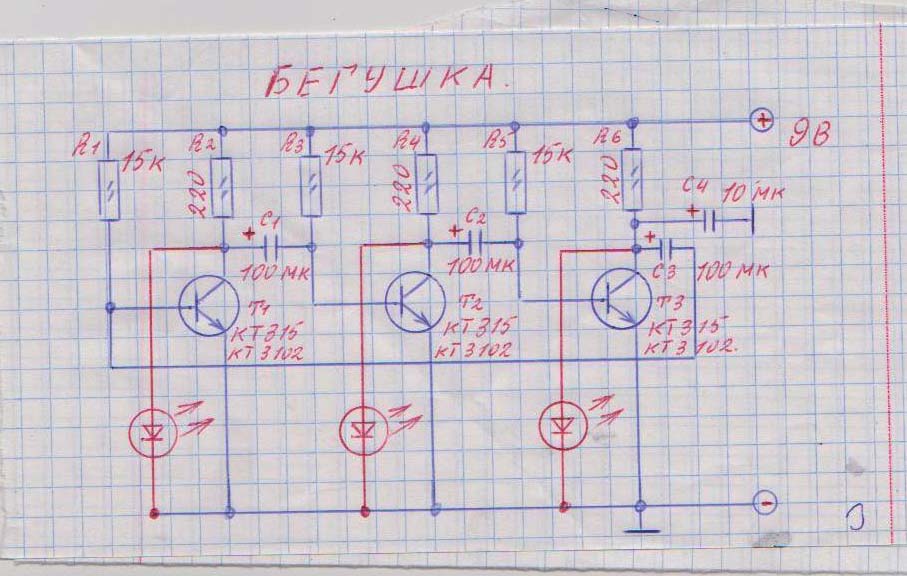 БЕГУШКА.
R1 15К R2 220 R3 15К R4 220 R5 15К R6 220
+ 9В
C4 + 10 МК
+ C1 100 МК
+ C2 100 МК
+ C3 100 МК
T1 КТ315 КТ3102
T2 КТ315 КТ3102
T3 КТ315 КТ3102.
-